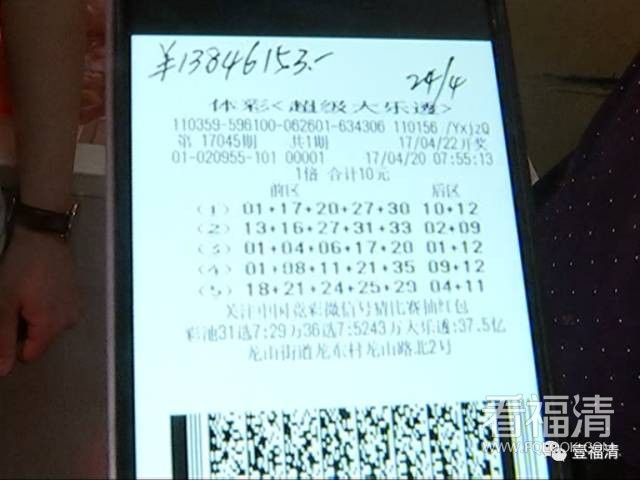 ¥13846153.-
24/4
体彩<超级大乐透>
110359-596100-062601-634306 110156 /YxjzQ
第 17045期 共1期 17/04/22开奖
01-020955-101 00001 17/04/20 07:55:13
1倍 合计10元
前区 后区
(1) 01+17+20+27+30 10+12
(2) 13+16+27+31+33 02+09
(3) 01+04+06+17+20 01+12
(4) 01+08+11+21+35 09+12
(5) 18+21+24+25+29 04+11
关注中国竞彩微信号猜比赛抽红包
彩池31选7:29万36选7:5243万大乐透:37.5亿
龙山街道龙东村龙山路北2号
看福清
壹福清